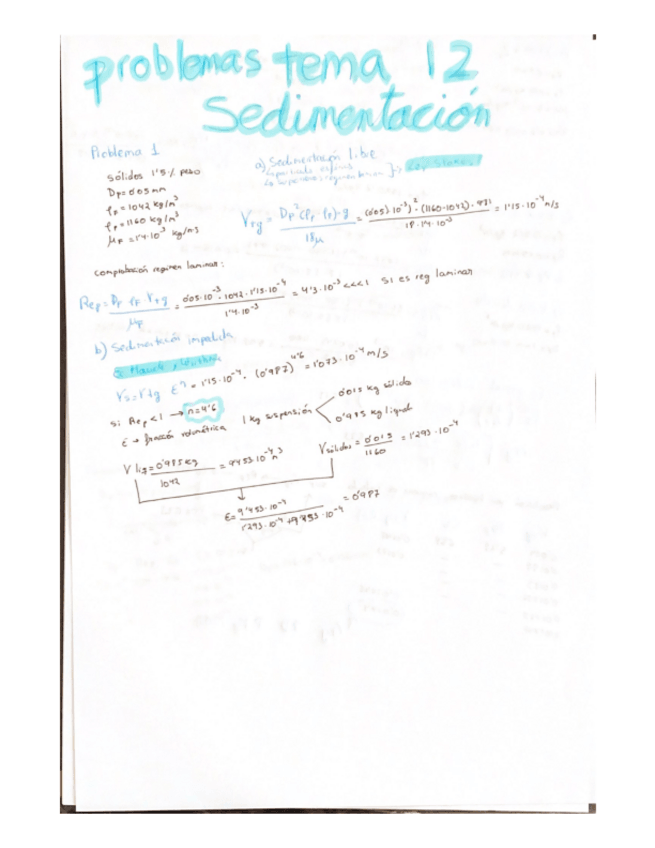 problemas tema 12
Sedimentación
Problema 1
sólidos 1'5% peso
Dp = 0'05 mm
ρF = 1042 kg/m³
ρp = 1160 kg/m³
μF = 1'4·10⁻³ kg/m·s
a) Sedimentación libre
Vtg = Dp²(ρp - ρF)·g / 18μ = (0'05·10⁻³)²·(1160-1042)·9'81 / 18·1'4·10⁻³ = 1'15·10⁻⁴ m/s
comprobación regimen laminar:
Rep = Dp ρF Vtg / μF = 0'05·10⁻³·1042·1'15·10⁻⁴ / 1'4·10⁻³ = 4'3·10⁻³ <<<1 Si es reg laminar
b) Sedimentación impedida
Vs = Vtg εⁿ = 1'15·10⁻⁴ · (0'987)^4'6 = 1'073·10⁻⁴ m/s
si Rep < 1 → n=4'6
ε → fracción volumétrica
1 kg suspensión
0'015 kg sólido
0'985 kg líquido
V liq = 0'985 kg / 1042 = 9'453·10⁻⁴ m³
V sólidos = 0'015 / 1160 = 1'293·10⁻⁴
ε = 9'453·10⁻⁴ / 1'293·10⁻⁴ + 9'453·10⁻⁴ = 0'987